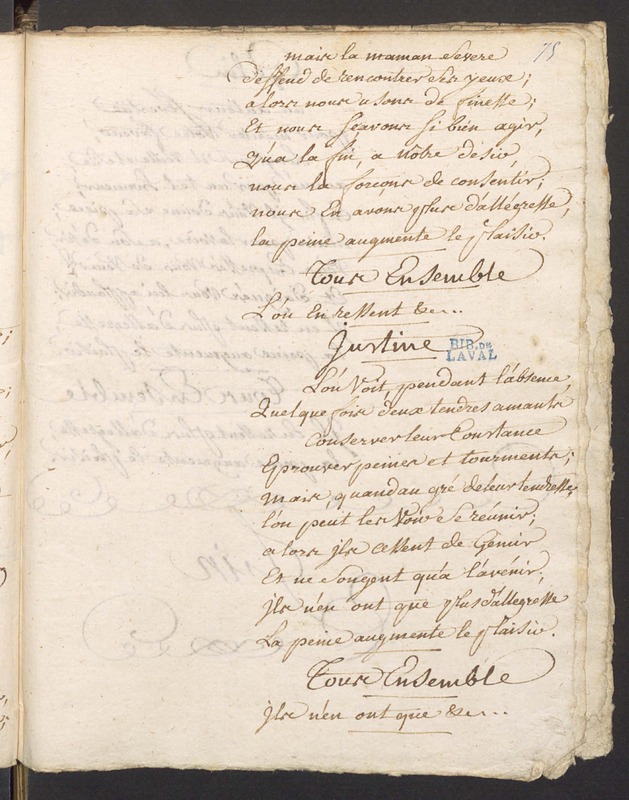 75
mais la maman severe
deffend de rencontrer ses yeux;
alors nous usons de finesse;
Et nous sçavons si bien agir,
Qu'a la fin, a nôtre désir,
nous la forçons de consentir;
nous En avons plus d'allégresse,
la peine augmente le plaisir.
Tous Ensemble
L'on En ressent &c...
Justine
BIB. DE
LAVAL
L'on Voit, pendant l'absence,
Quelque fois deux tendres amants
Conserver leur Constance
Eprouver peines et tourments;
mais, quand au gré de leur tendresse,
l'on peut les Voir se réunir;
alors ils cessent de Gémir
Et ne songent qu'a l'avenir,
ils n'en ont que plus d'allegresse
La peine augmente le plaisir.
Tous Ensemble
ils n'en ont que &c...